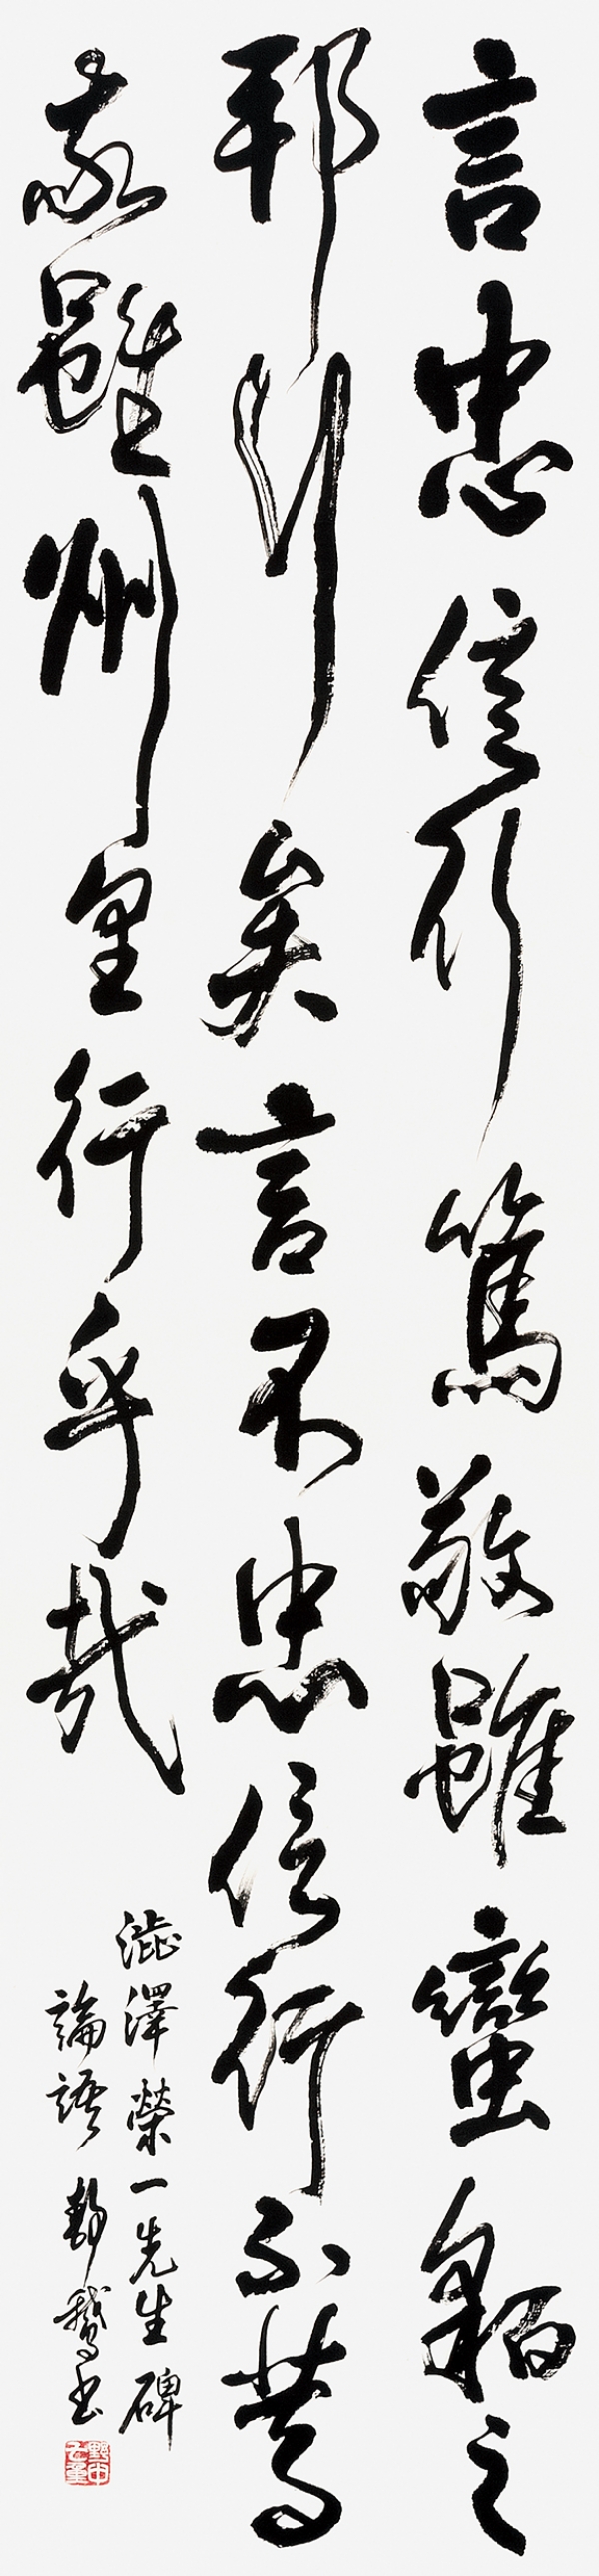 言忠信行篤敬雖蠻貊之
邦行矣言不忠信行不篤
敬雖州里行乎哉
澁澤榮一先生碑
論語 静鵞书